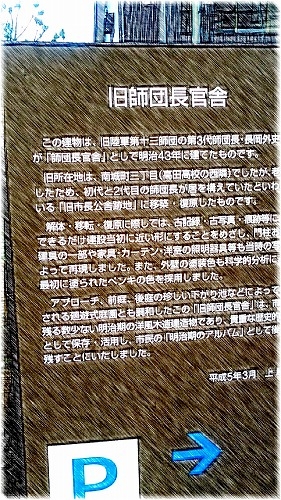 旧師団長官舎
この建物は、旧陸軍第十三師団の第3代師団長・長岡外史
が「師団長官舎」として明治43年に建てたものです。
旧所在地は、南城町三丁目(高田高校の西隣)でしたが、
したため、初代と2代目の師団長が居を構えていたといわ
いる「旧市長公舎跡地」に移築・復原したものです。
解体・移転・復原に際しては、古記録・古写真・痕跡等に
できるだけ建設当初に近い形にすることをめざし、門柱
建具の一部や家具・カーテン・洋室の照明器具等も当時の
よって再現しました。また、外壁の塗装色も科学的分析に
最初に塗られたペンキの色を採用しました。
アプローチ、前庭、後庭の珍しい下がり池などによって
される廻遊式庭園とも調和したこの「旧師団長官舎」は、
残る数少ない明治期の洋風木造建造物であり、貴重な歴史的
として保存・活用し、市民の「明治期のアルバム」として後
残すことにいたしました。
平成5年3月 上
P